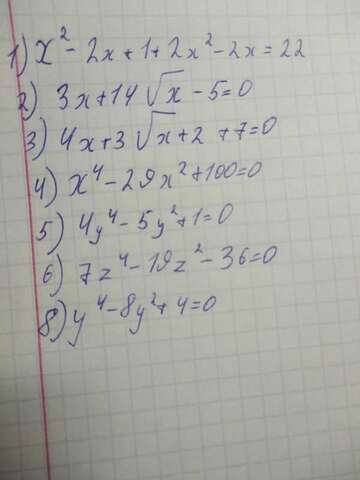 1) x² - 2x + 1 + 2x² - 2x = 22
2) 3x + 14 √x - 5 = 0
3) 4x + 3 √x + 2 + 7 = 0
4) x⁴ - 29x² + 100 = 0
5) 4y⁴ - 5y² + 1 = 0
6) 7z⁴ - 19z² - 36 = 0
8) y⁴ - 8y² + 4 = 0